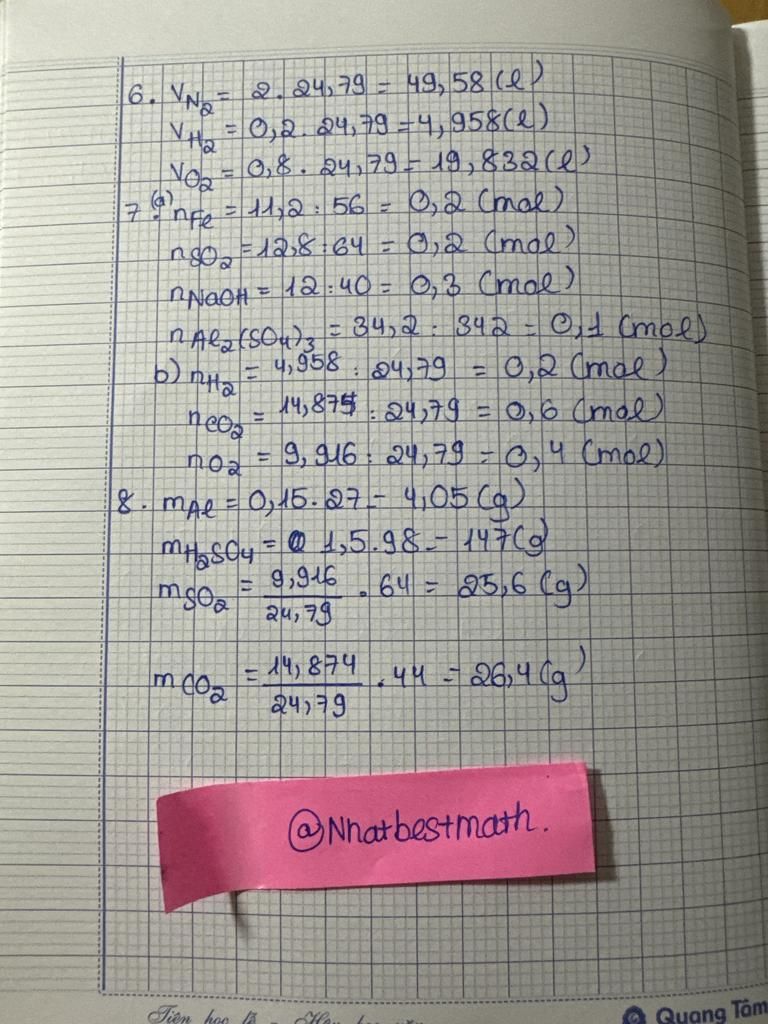 6. V_N₂ = 2 . 24,79 = 49,58 (l)
V_H₂ = 0,2 . 24,79 = 4,958 (l)
V_O₂ = 0,8 . 24,79 = 19,832 (l)
7. (a) n_Fe = 11,2 : 56 = 0,2 (mol)
n_SO₂ = 12,8 : 64 = 0,2 (mol)
n_NaOH = 12 : 40 = 0,3 (mol)
n_Al₂(SO₄)₃ = 34,2 : 342 = 0,1 (mol)
b) n_H₂ = 4,958 : 24,79 = 0,2 (mol)
n_CO₂ = 14,874 : 24,79 = 0,6 (mol)
n_O₂ = 9,916 : 24,79 = 0,4 (mol)
8. m_Al = 0,15 . 27 = 4,05 (g)
m_H₂SO₄ = 1,5 . 98 = 147 (g)
m_SO₂ = 9,916/24,79 . 64 = 25,6 (g)
m_CO₂ = 14,874/24,79 . 44 = 26,4 (g)
@Nhatbestmath.
Tiên học lễ -
Quang Tâm